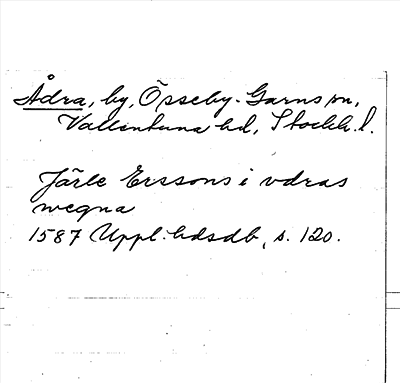 Ådra, by, Össeby-Garns sn,
Vallentuna hd, Stockh. l.
Järle Erssons i odras
wegna
1587 Uppl. hdsdb, s. 120.